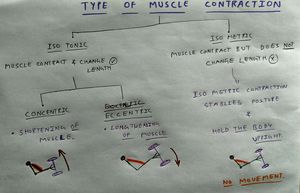 TYPE OF MUSCLE CONTRACTION
ISO TONIC
MUSCLE CONTRACT & CHANGE
LENGTH
ISO METRIC
MUSCLE CONTRACT BUT DOES NOT
CHANGE LENGTH
CONCENTRIC
• SHORTENING OF
MUSCLE.
ECCENTRIC
• LENGTHENING
OF MUSCLE.
ISO METRIC CONTRACTION
STABLES POSTURE
&
HOLD THE BODY
UPRIGHT.
NO MOVEMENT.